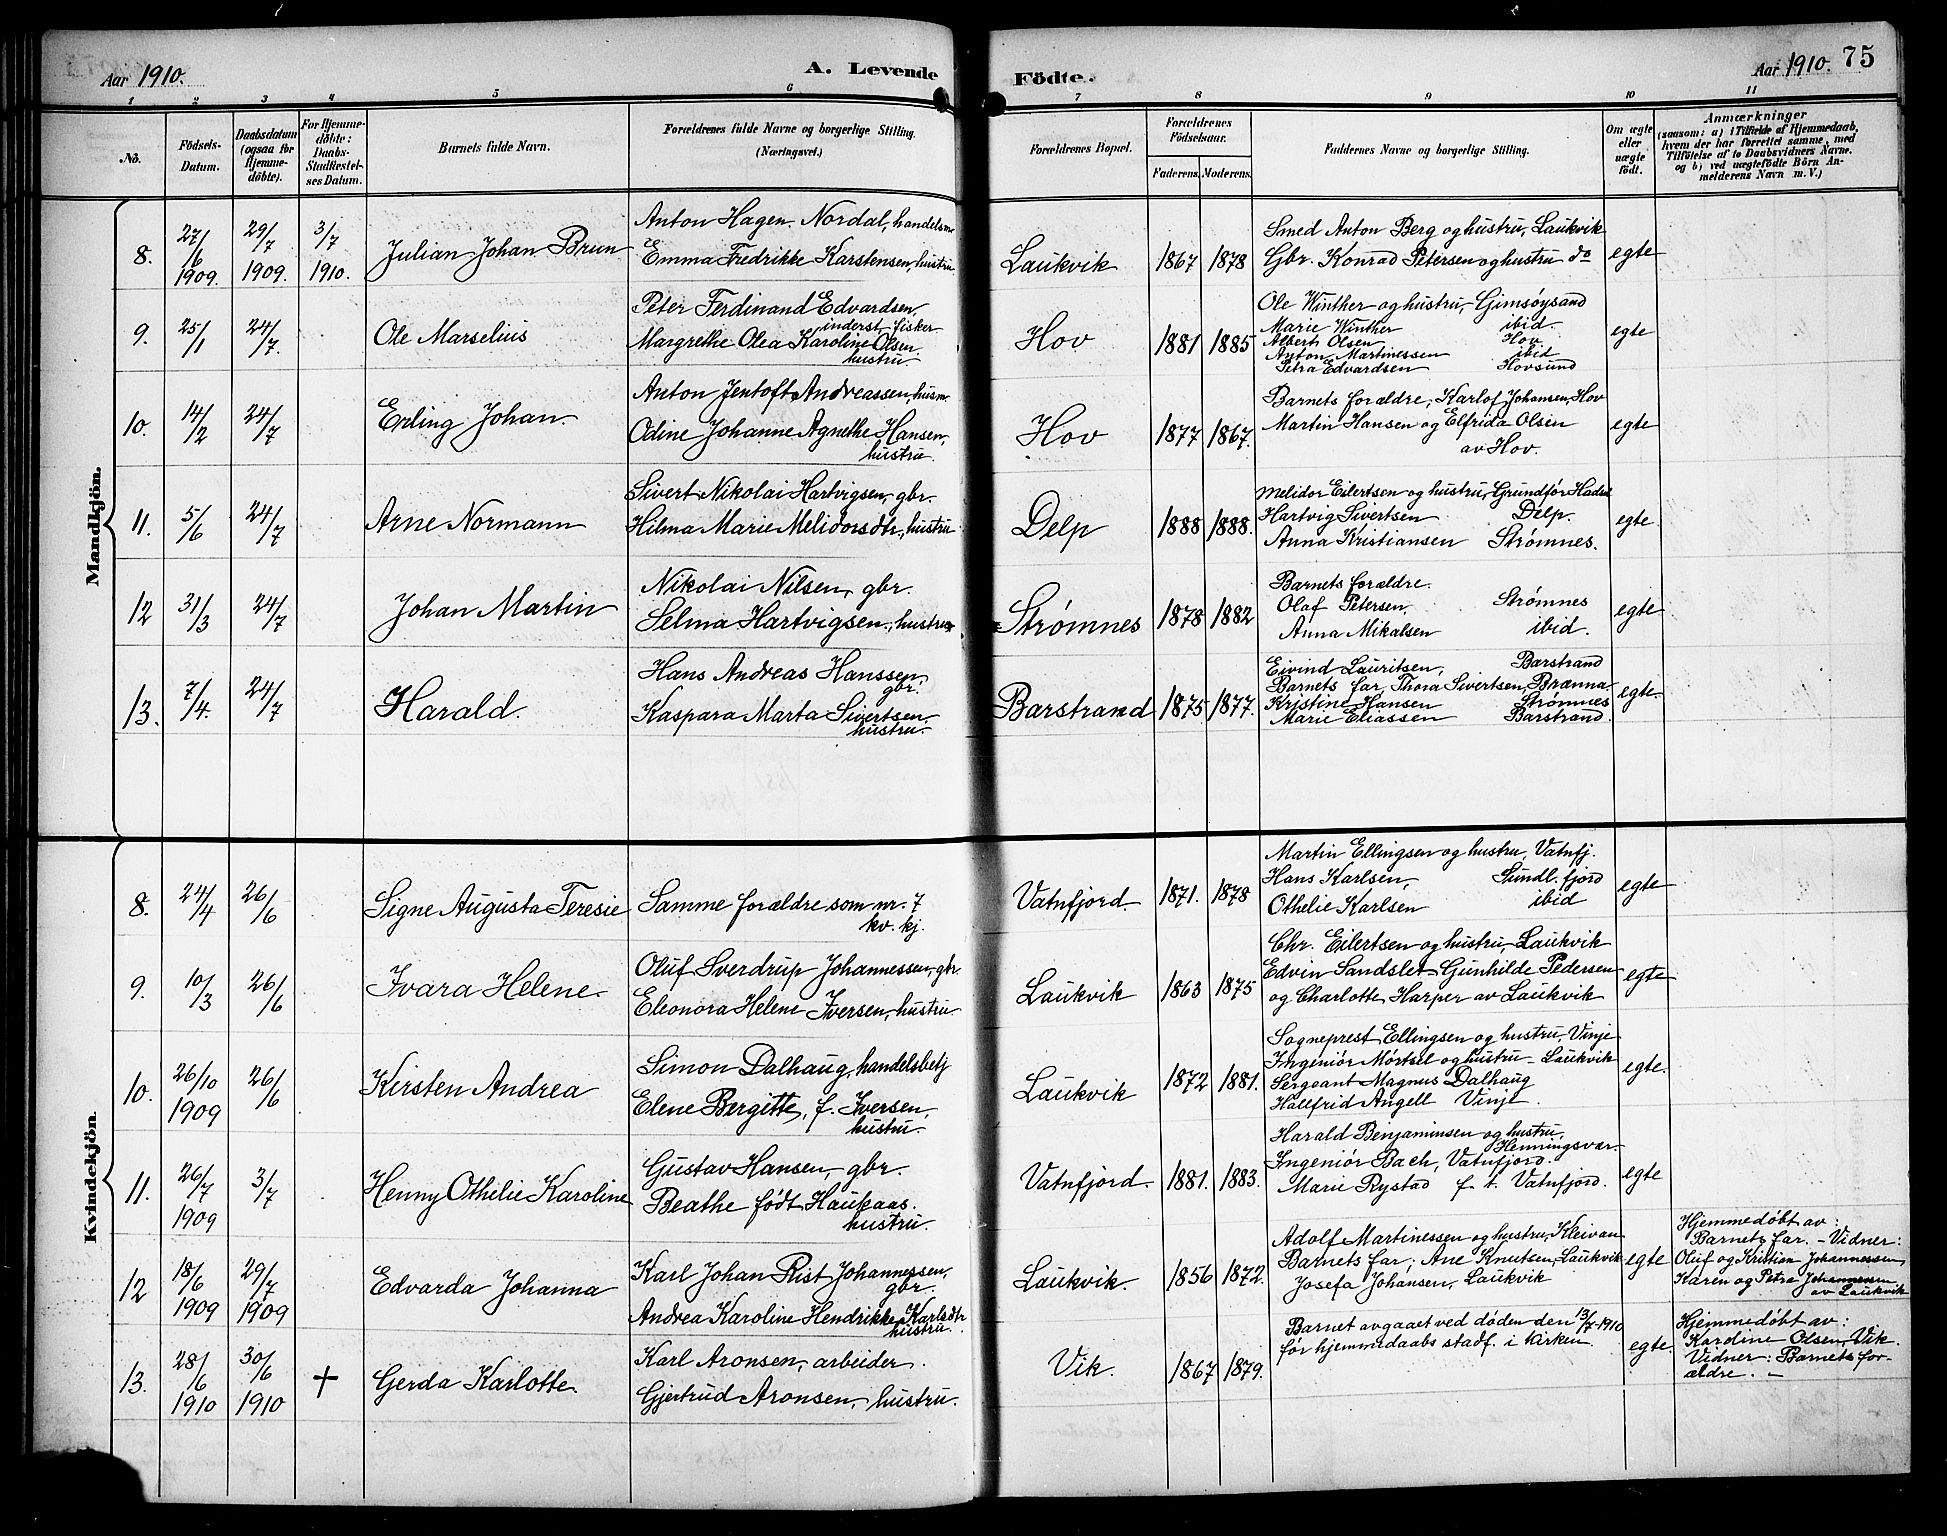 Aar 1910. A. Levende Födte. Aar 1910. 75
1 2 3 4 5 6 7 8 9 10 11
No. Födsels-Datum. Daabsdatum (ogsaa for Hjemme-döbte). For Hjemme-döbte: Daabs-Stadfæstel-ses Datum. Barnets fulde Navn. Forældrenes fulde Navne og borgerlige Stilling. (Næringsvei.) Forældrenes Bopæl. Forældrenes Födselsaar. Faderens. Moderens. Faddernes Navne og borgerlige Stilling. Om ægte eller uægte födt. Anmærkninger (saasom: a) i Tilfælde af Hjemmedaab, hvem der har forrettet samme, med Tilföielse af to Daabsvidners Navne, og b) ved uægtefödte Börn An-melderens Navn m. V.)
Mandkjön.
8. 27/6 1909. 29/7 1909. 3/7 1910. Julian Johan Brun
Anton Hagen Nordal, handelsm.
Emma Fredrikke Karstensen, hustru
Laukvik 1867 1878
Smed Anton Berg og hustru, Laukvik
Gbr. Konrad Petersen og hustru do
egte
9. 25/1 24/7. Ole Marselius
Peter Ferdinand Edvardsen,
inderst, fisker
Margrethe Olea Karoline Olsen
hustru.
Hov 1881 1885
Ole Winther og hustru, Gimsøysand
Marie Winther ibid.
Albert Olsen Hov.
Anton Martinessen ibid
Petra Edvardsen Hovsund
egte
10. 14/2 24/7 Erling Johan.
Anton Jentoft Andreassen, husm.
Odine Johanne Agnethe Hansen,
hustru.
Hov 1877 1867.
Barnets forældre; Karlof Johansen, Hov
Martin Hansen og Elfrida Olsen
av Hov.
egte
11. 5/6 24/7 Arne Normann
Sivert Nikolai Hartvigsen, gbr.
Hilma Marie Melidorsdtr., hustru
Delp 1888 1888.
Melidor Eilertsen og hustru, Grundfør Hadsel
Hartvig Sivertsen Delp.
Anna Kristiansen Strømnes.
egte
12 31/3 24/7 Johan Martin
Nikolai Nilsen, gbr.
Selma Hartvigsen, hustru
Strømnes 1878 1882
Barnets forældre.
Olaf Petersen, Strømnes
Anna Mikalsen ibid.
egte
13. 7/4. 24/7 Harald.
Hans Andreas Hanssen,
gbr.
Kaspara Marta Sivertsen.
hustru.
Barstrand 1875 1877.
Eivind Lauritsen, Barstrand
Barnets far, Thora Sivertsen, Brænna
Kristine Hansen Strømnes
Marie Eliassen Barstrand.
egte.
Kvindekjön.
8. 24/4 26/6 Signe Augusta Teresie
Samme forældre som nr. 7
kv. kj.
Vatnfjord. 1871. 1878
Martin Ellingsen og hustru, Vatnfj.
Hans Karlsen, Sundl. fjord
Othelie Karlsen ibid
egte
9. 10/3 26/6 Ivara Helene.
Oluf Sverdrup Johannessen, gbr.
Eleonora Helene Iversen, hustru.
Laukvik 1863 1875
Chr. Eilertsen og hustru, Laukvik
Edvin Sandslet, Gunhilde Pedersen
og Charlotte Harper av Laukvik
egte
10. 26/10 1909 26/6 Kirsten Andrea
Simon Dalhaug, handelsbetj
Elene Bergitte, f. Iversen,
hustru.
Laukvik 1872 1881.
Sogneprest Ellingsen og hustru, Vinje
Ingeniör Mörtsel og hustru - Laukvik
Sergeant Magnus Dalhaug
Hallfrid Angell Vinje.
egte.
11. 26/7 1909 3/7 Henny Othelie Karoline
Gustav Hansen, gbr.
Beathe født Haukaas.
hustru.
Vatnfjord. 1881. 1883.
Harald Benjaminsen og hustru,
Henningsvær.
Ingeniör Bach, Vatnfjord.
Marie Rystad f. t. Vatnfjord.
egte
12 18/6 1909 29/7 1909 Edvarda Johanna
Karl Johan Rist Johannessen,
gbr.
Andrea Karoline Hendrikke Karlsdtr
hustru.
Laukvik. 1856 1872.
Adolf Martinessen og hustru, Kleivan
Barnets far; Ane Knutsen, Laukvik
Josefa Johansen, Laukvik
egte
Hjemmedøbt av:
Barnets far. - Vidner:
Oluf og Kristian Johannessen
Karen og Petra Johannessen
av Laukvik
13. 28/6 1910 30/6 1910 † Gerda Karlotte.
Karl Aronsen, arbeider.
Gjertrud Aronsen, hustru.
Vik. 1867 1879.
Barnet avgaaet ved døden den 13/7 1910
før hjemmedaabs stadf. i kirken.
egte.
Hjemmedøbt av:
Kardine Olsen, Vik.
Vidner: Barnets for-
ældre. -